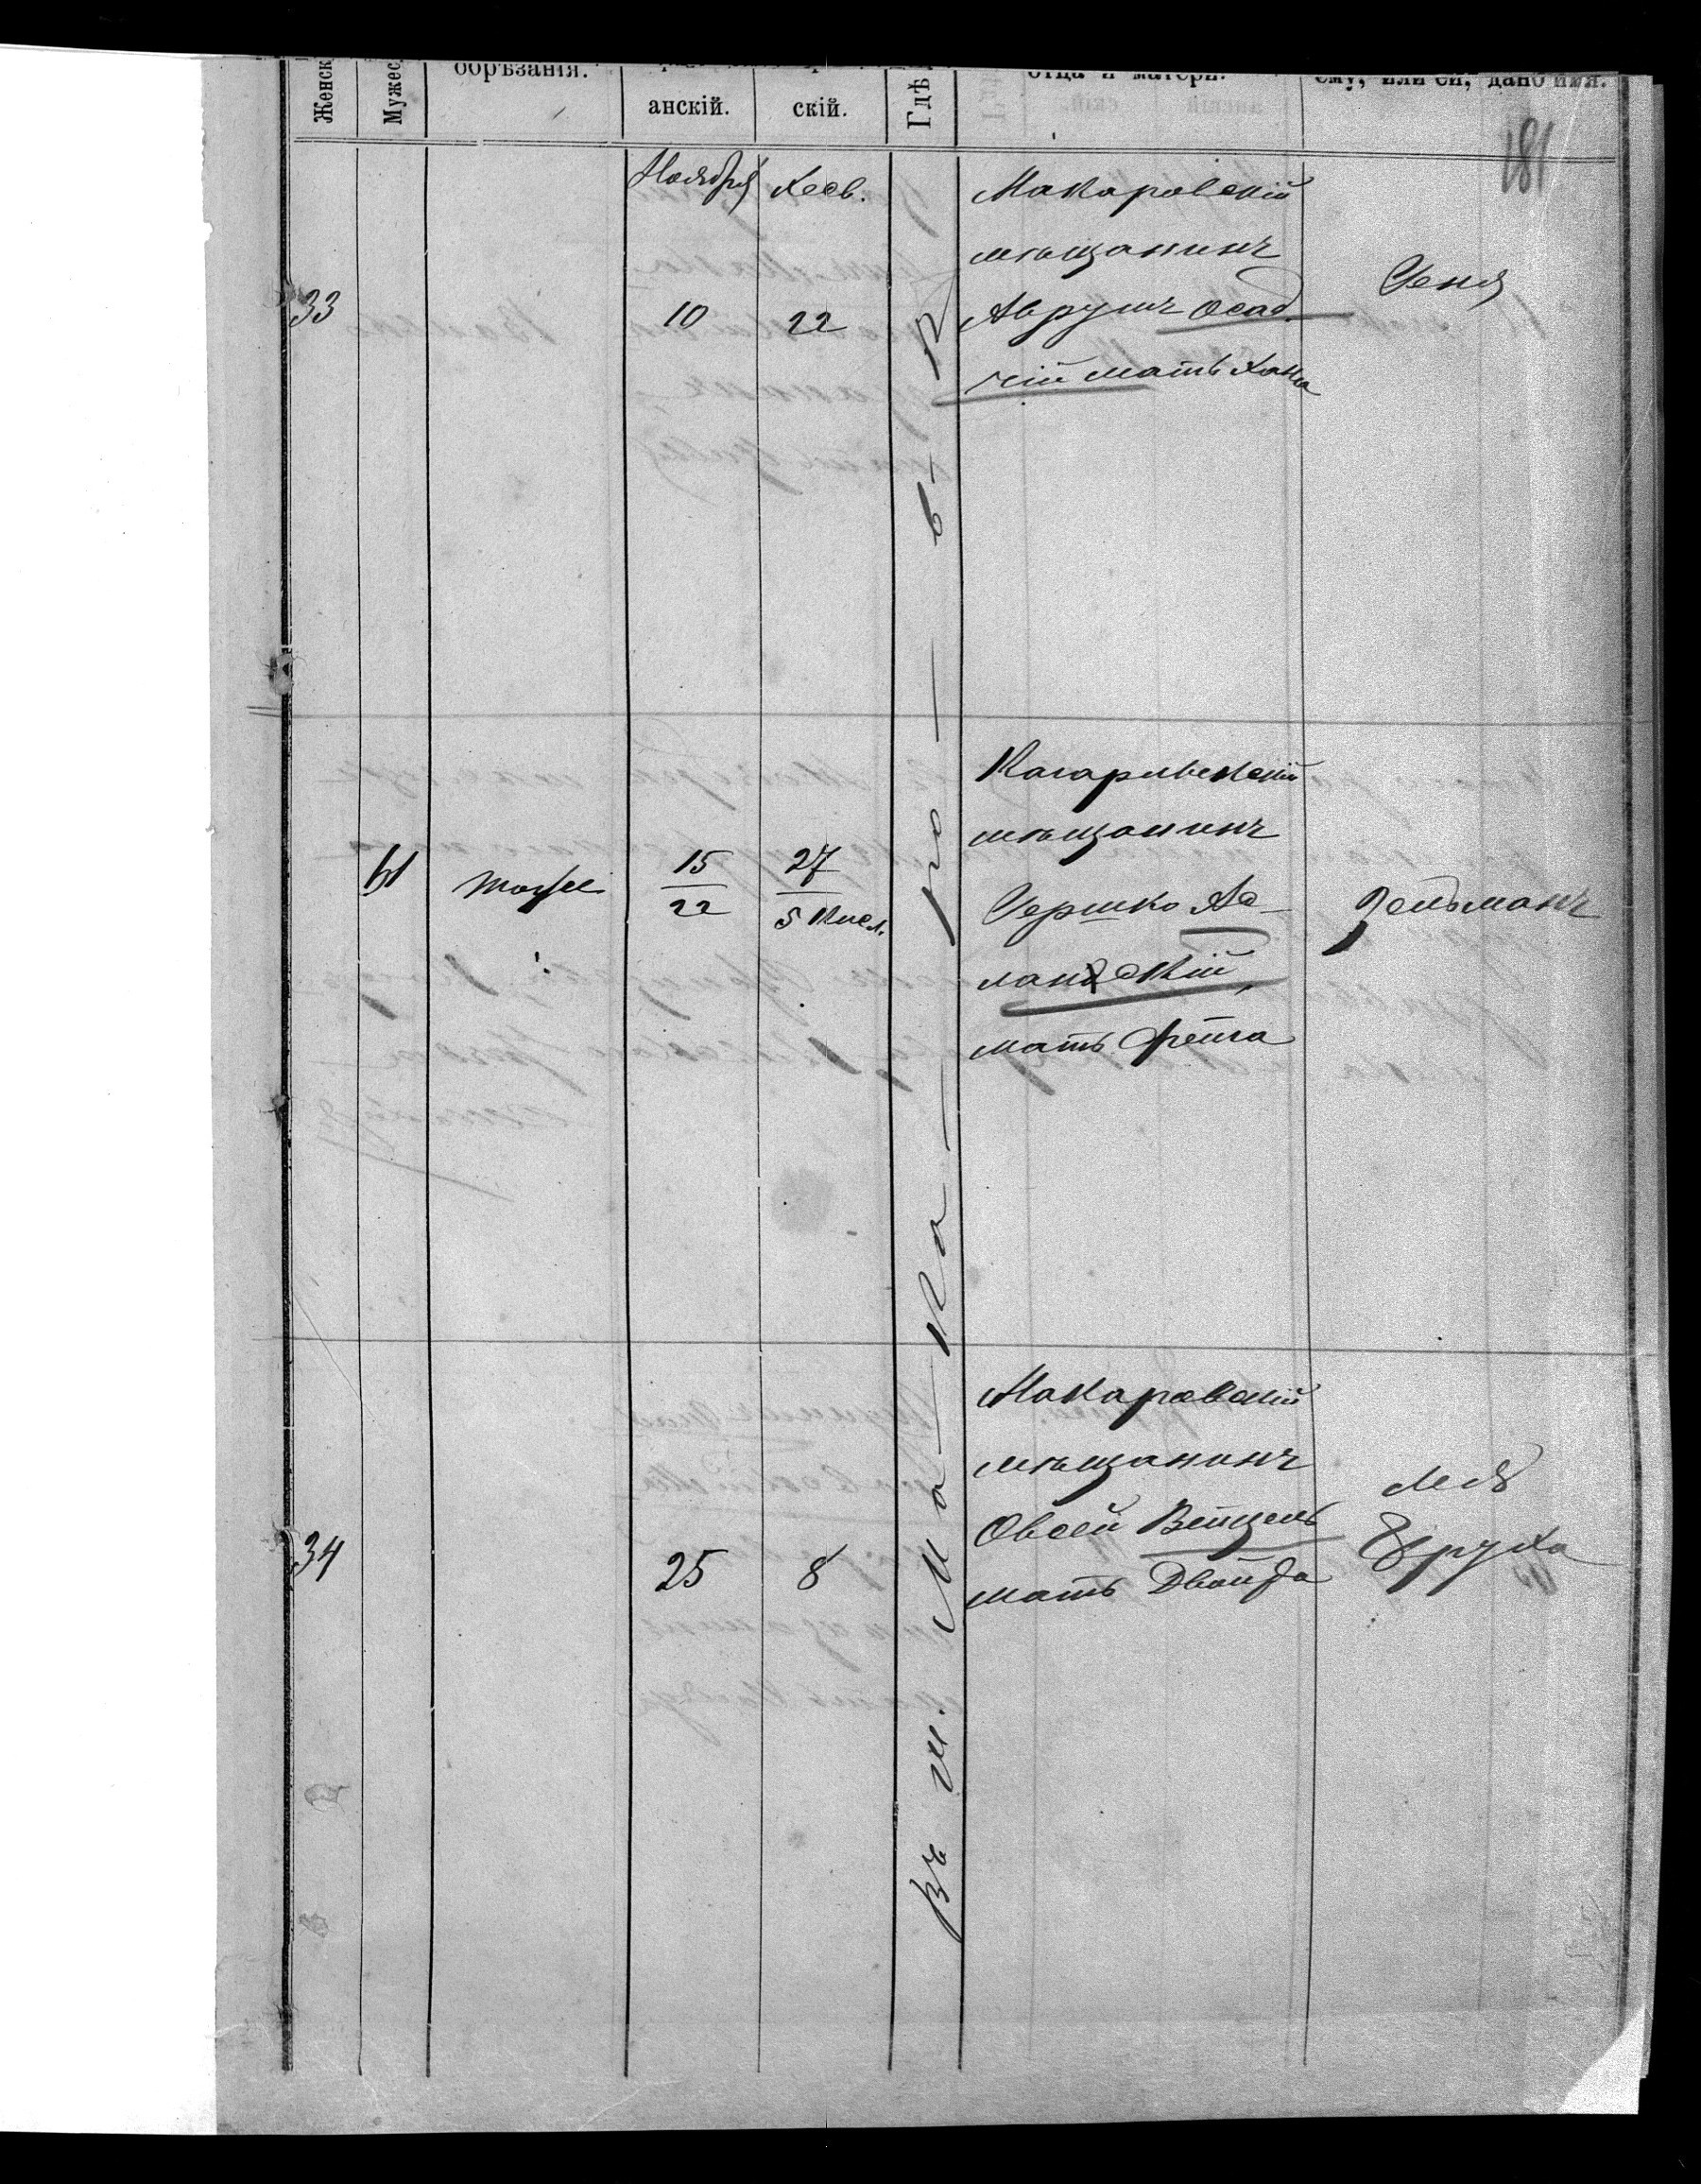 Женск
Мужес
обрѣзанія.
анскій.
скій.
Гдѣ
отца и матери.
ему, или ей, дано имя.
181
Ноября
Хесв.
33
10
22
Макаровскій
мѣщанинъ
Аврумъ Осад
чій мать Хана
Геня
41
15
22
27
5 Кисл.
Кагарлыкскій
мѣщанинъ
Гершко
ланскій,
мать Фейга
Зельманъ
34
25
8
Макаровскій
мѣщанинъ
Овсей Вейцель
мать Двойра
Лея
Бруха
Въ м. Ма-ка-ро-в-ѣ